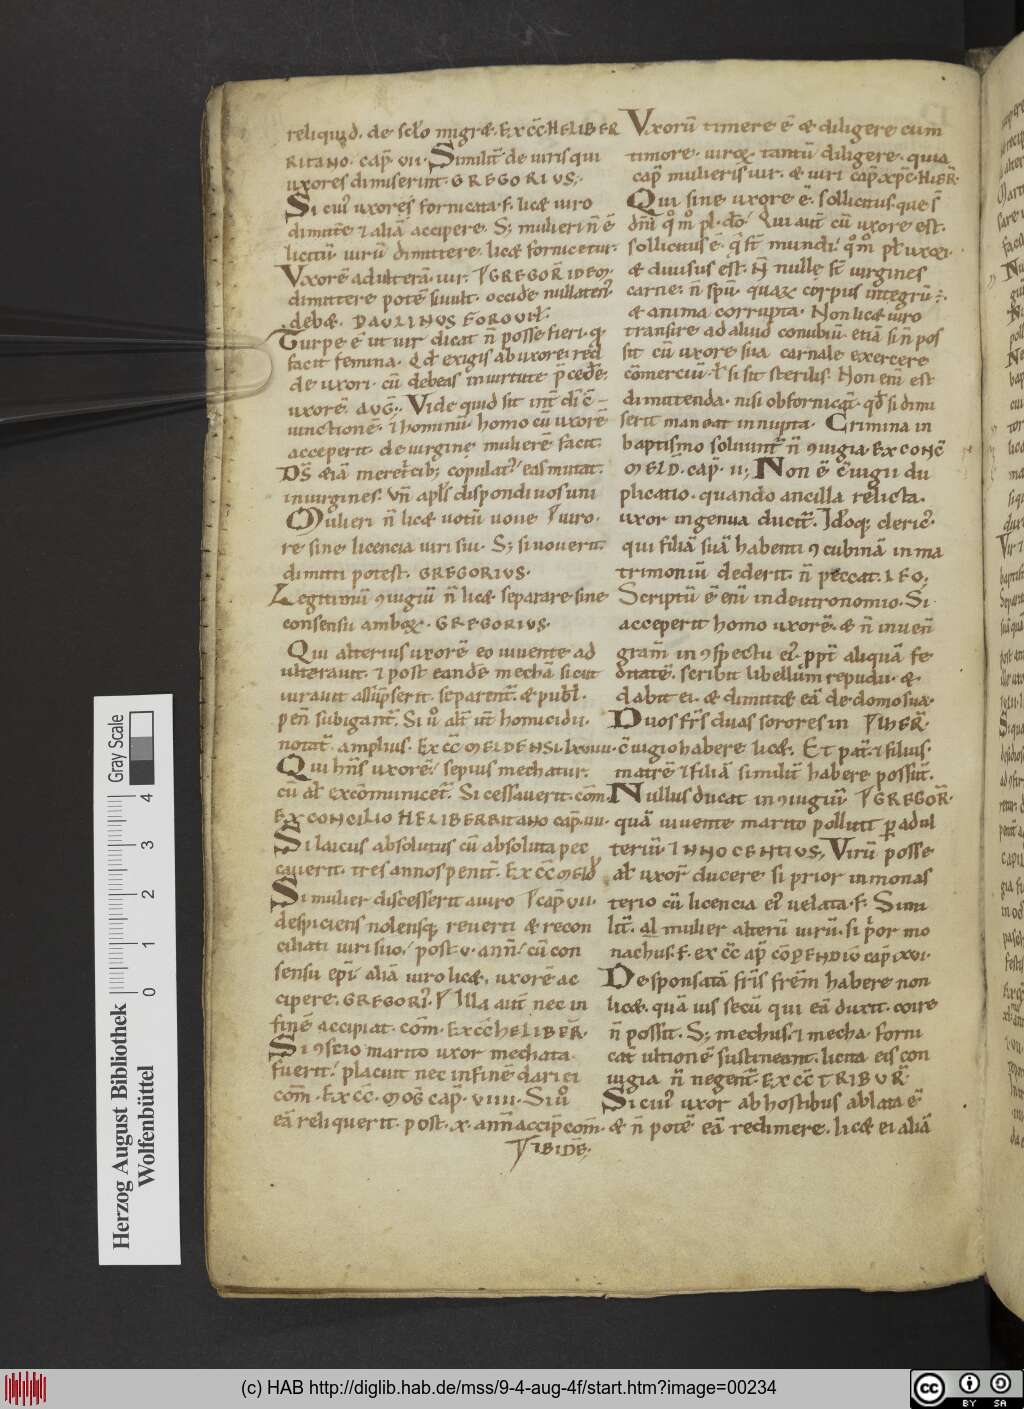 reliquid. de sclo migræ. Ex cc̄ HELIBER
RITANO. cap̄. vii. Similit̄ de uiris qui
uxores dimiserint. GREGORIUS.
Si cui' uxores fornicata. f. licæ uiro
dimittē ⁊ aliā accipere. S; mulieri n̄ ē
licitū uirū dimittere. licæ fornicetur.
Vxorē adulterā. uir. GREGOR̄ IDEM.
dimittere potē si uult. occide nullaten'
debæ. PAULINUS FOROVIL.
Turpe ē ut uir dicat n̄ posse fieri. q̄
facit femina. Qd̄ exigis ab uxore. red
de uxori. cū debeas in uirtute p̄cedē.
uxorē. AUG. Vide quid sit int̄ di ē
iunctionē. ⁊ hominū. homo cū uxorē
acceperit. de uirginē mulierē facit.
Ds̄ æiā meretcib; copulat' eas mutat.
in uirgines. Vn̄ apl̄s dispondi uos uni
Mulieri n̄ licæ uotū uoue uiro.
re sine licencia uiri sui. S; si uouerit.
dimitti potest. GREGORIUS.
Legitimū ꝯiugiū n̄ licæ separare sine
consensu amboꝝ. GREGORIUS.
Qui alterius uxorē eo uiuente ad
ulterauit. ⁊ post eandē mechā sicut
iurauit assūpserit. separent̄. & publ̄.
pen̄ subigant̄. Si u° alt̄ ut̄ homicidii.
notat̄ amplius. Ex cc̄ MELDENSI. lxviiii.
Qui hn̄s uxorē. sepius mechatur.
cū al excōmunicet̄. Si cessauerit. cōm.
EX CONCILIO HELIBERRITANO cap̄. viii.
Si laicus absolutus cū absoluta pec
cauerit. tres annos penit̄. Ex cc̄ MELD
Si mulier discesserit a uiro cap̄. vii.
despiciens nolensq; reuerti & recon
ciliati uiri suo. post. v. ann̄. cū con
sensu epī. aliā uiro licæ. uxorē ac
cipere. GREGORI'. Illa aut̄ nec in
finē accipiat. cōm. Ex cc̄ HELIBER̄.
Si ꝯscio marito uxor mechata
fuerit. placuit nec in finē dari ei
cōm. Ex cc̄. MOG̃ cap̄. viiii. Si u°
eā reliquerit. post. x. ann̄ accip̄ cōm.
Vxorū timere ē & diligere cum
timore. uiroꝝ tantū diligere. quia
cap̄ mulieris uir. & uiri cap̄ xp̄c. HIER̄.
Qui sine uxore ē. sollicitus. que s̄
dn̄i q°m° pl. do. Qui aut̄ cū uxore est.
sollicitus ē. q̄ st̄ mundi. q°m° pl uxori.
& diuisus est. N̄ nulle st̄ uirgines
carne. n̄ spū. quaꝝ corpus integrū.
& anima corrupta. Non licæ uiro
transire ad aliud conubiū. etiā si n̄ pos
sit cū uxore sua carnale exercere
cōmerciū. ł si sit sterilis. Non eni est
dimittenda. nisi ob fornicat̄. qd̄ si dimi
serit maneat innupta. Crimina in
baptismo soluunt̄ n̄ ꝯiugia. Ex CONC̄
MELD. cap̄. ii. Non ē c̄iugii du
plicatio. quando ancilla relicta.
uxor ingenua ducit̄. Idoq; cleric'.
qui filiā suā habenti ꝯcubinā in ma
trimoniū dederit. n̄ peccat. LEO.
Scriptū ē eni in deutronomio. Si
acceperit homo uxorē. & n̄ inuen̄
gram̄ in ꝯspectu ei'. ppt̄ aliquā fe
ditatē. scribit libellum repudii. &
dabit ei. & dimittæ eā de domo sua.
Duos frs̄ duas sorores in IHER̄.
c̄iugio habere licæ. Et pat̄. ⁊ filius.
matrē ⁊ filiā similit̄ habere possūt.
Nullus ducat in ꝯiugiū GREGOR̄.
quā uiuente marito polluit ꝑ adul
teriū. INNOCENTIUS. Virū posse
al uxor̄ ducere si prior in monas
terio cū licencia ei' uelata. f. Simi
lit̄. al mulier alterū uirū. si p̄or mo
nachus. f. ex cc̄ ap̄ CŌPENDIO cap̄ ixvi.
Desponsatā fris̄ frēm habere non
licæ. quā uis secū qui eā duxit. coire
n̄ possit. S; mechus. ⁊ mecha. forni
cat̄ ultionē sustineant. licita eis con
iugia n̄ negent̄. Ex cc̄ TRIBUR̄.
Si cui' uxor ab hostibus ablata ē
& n̄ potē eā redimere. licæ ei aliā
IBIDĒ.
Gray Scale
0 1 2 3 4
Herzog August Bibliothek
Wolfenbüttel
(c) HAB http://diglib.hab.de/mss/9-4-aug-4f/start.htm?image=00234
cc BY SA